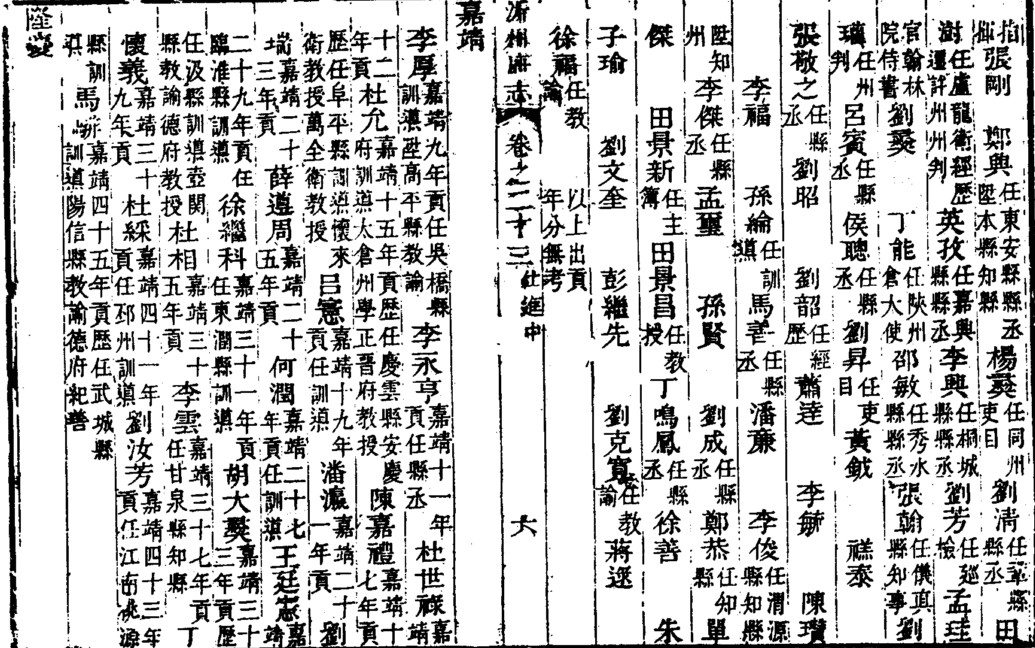 指揮張剛 鄭興任東安縣縣丞陞本縣知縣 楊蓁任同州吏目 劉清任莘縣縣丞 田
澍任盧龍衛經歷遷許州州判 英孜任嘉興縣縣丞 李興任桐城縣縣丞 劉芳任巡檢 孟珪
官翰林院侍書 劉蓁 丁能任陝州倉大使 邵敏任秀水縣縣丞 張翰任儀真縣知事 劉
任州判 呂賓任縣丞 侯聰任縣丞 劉昇任吏目 黃鉞 禚泰
張敬之任縣丞 劉昭 劉韶任經歷 蕭逵 李敏 陳瓚
李福 孫綸任訓導 馬善任縣丞 潘廉 李俊任渭源縣知縣
陞知州 李傑任縣丞 孟璽 孫賢 劉成任縣丞 鄭恭任知縣 單
傑 田景新任主簿 田景昌任教授 丁鳴鳳任縣丞 徐善 朱
子瑜 劉文奎 彭繼先 劉克寬任教諭 蔣遜
徐福任教諭 以上出貢年分無考
沂州府志 卷之二十三 仕進中 六
嘉靖
李厚嘉靖九年貢任吳橋縣訓導陞高平縣教諭 李永亨嘉靖十一年貢任縣丞 杜世祿嘉靖
十二年貢 杜允嘉靖十五年貢歷任慶雲縣安慶府訓導太倉州學正晉府教授 陳嘉禮嘉靖十七年貢
歷任阜平縣訓導懷來衛教授萬全衛教授 呂憲嘉靖十九年貢任訓導 潘瀛嘉靖二十一年貢 劉
瑞嘉靖二十三年貢 薛遵周嘉靖二十五年貢 何潤嘉靖二十七年貢任訓導 王廷憲嘉靖
二十九年貢任臨淮縣訓導 徐繼科嘉靖三十一年貢任東澗縣訓導 胡大奬嘉靖三十三年貢歷
任汲縣訓導壺關縣教諭德府教授 杜相嘉靖三十五年貢 李雲嘉靖三十七年貢任甘泉縣知縣 丁
懷義嘉靖三十九年貢 杜綵嘉靖四十一年貢任邳州訓導 劉汝芳嘉靖四十三年貢任江南桃源
縣訓導 馬 嘉靖四十五年貢歷任武城縣訓導陽信縣教諭德府紀善
隆慶